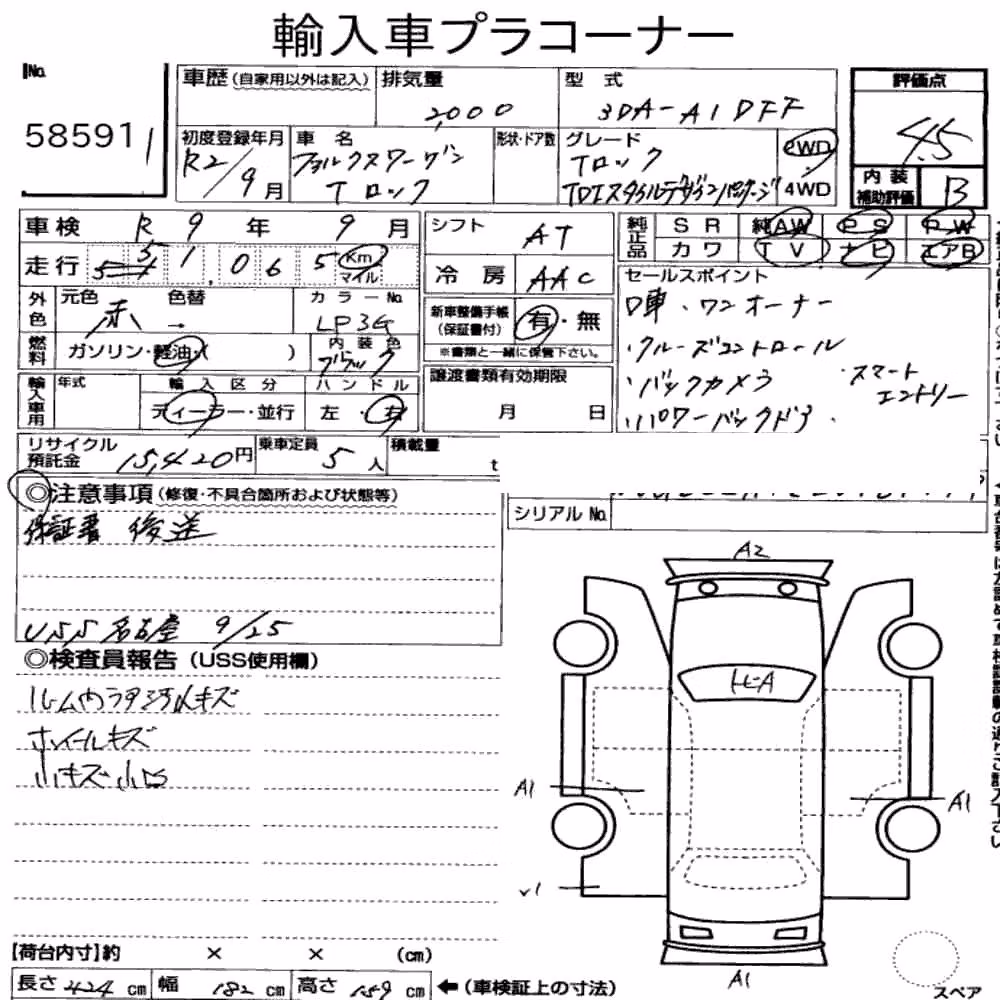 輸入車プラコーナー
No.
58591
車歴(自家用以外は記入)
排気量 2,000
型式 3DA-A1DFF
評価点 4.5
内装補助評価 B
初度登録年月 R2/9月
車名 フォルクスワーゲン Tロック
形状・ドア数
グレード Tロック TDIスタイルデザインパッケージ
2WD
4WD
車検 R9年9月
走行 51,065 Km マイル
シフト AT
冷房 AAC
純正品 SR 純AW PS PW
カワ TV ナビ エアB
外色 元色 赤 色替
カラーNo. LP3G
内装色 ブラック
新車整備手帳(保証書付) 有・無
※書類と一緒に保管下さい。
セールスポイント
D車・ワンオーナー
・クルーズコントロール
・バックカメラ ・スマートエントリー
・パワーバックドア・
燃料 ガソリン・軽油・( )
輸入車用 年式
輸入区分 ディーラー・並行
ハンドル 左・右
譲渡書類有効期限
月 日
リサイクル預託金 15,420円
乗車定員 5人
積載量 t
◎注意事項(修復・不具合箇所および状態等)
保証書 後送
USS名古屋 9/25
シリアルNo.
◎検査員報告(USS使用欄)
ルーム内ラゲージ汚れキズ
ホイールキズ
小キズ小凹
A2
A1
A1
A1
【荷台内寸】約 × × (cm)
長さ 424 cm 幅 182 cm 高さ 159 cm ←(車検証上の寸法)
スペア